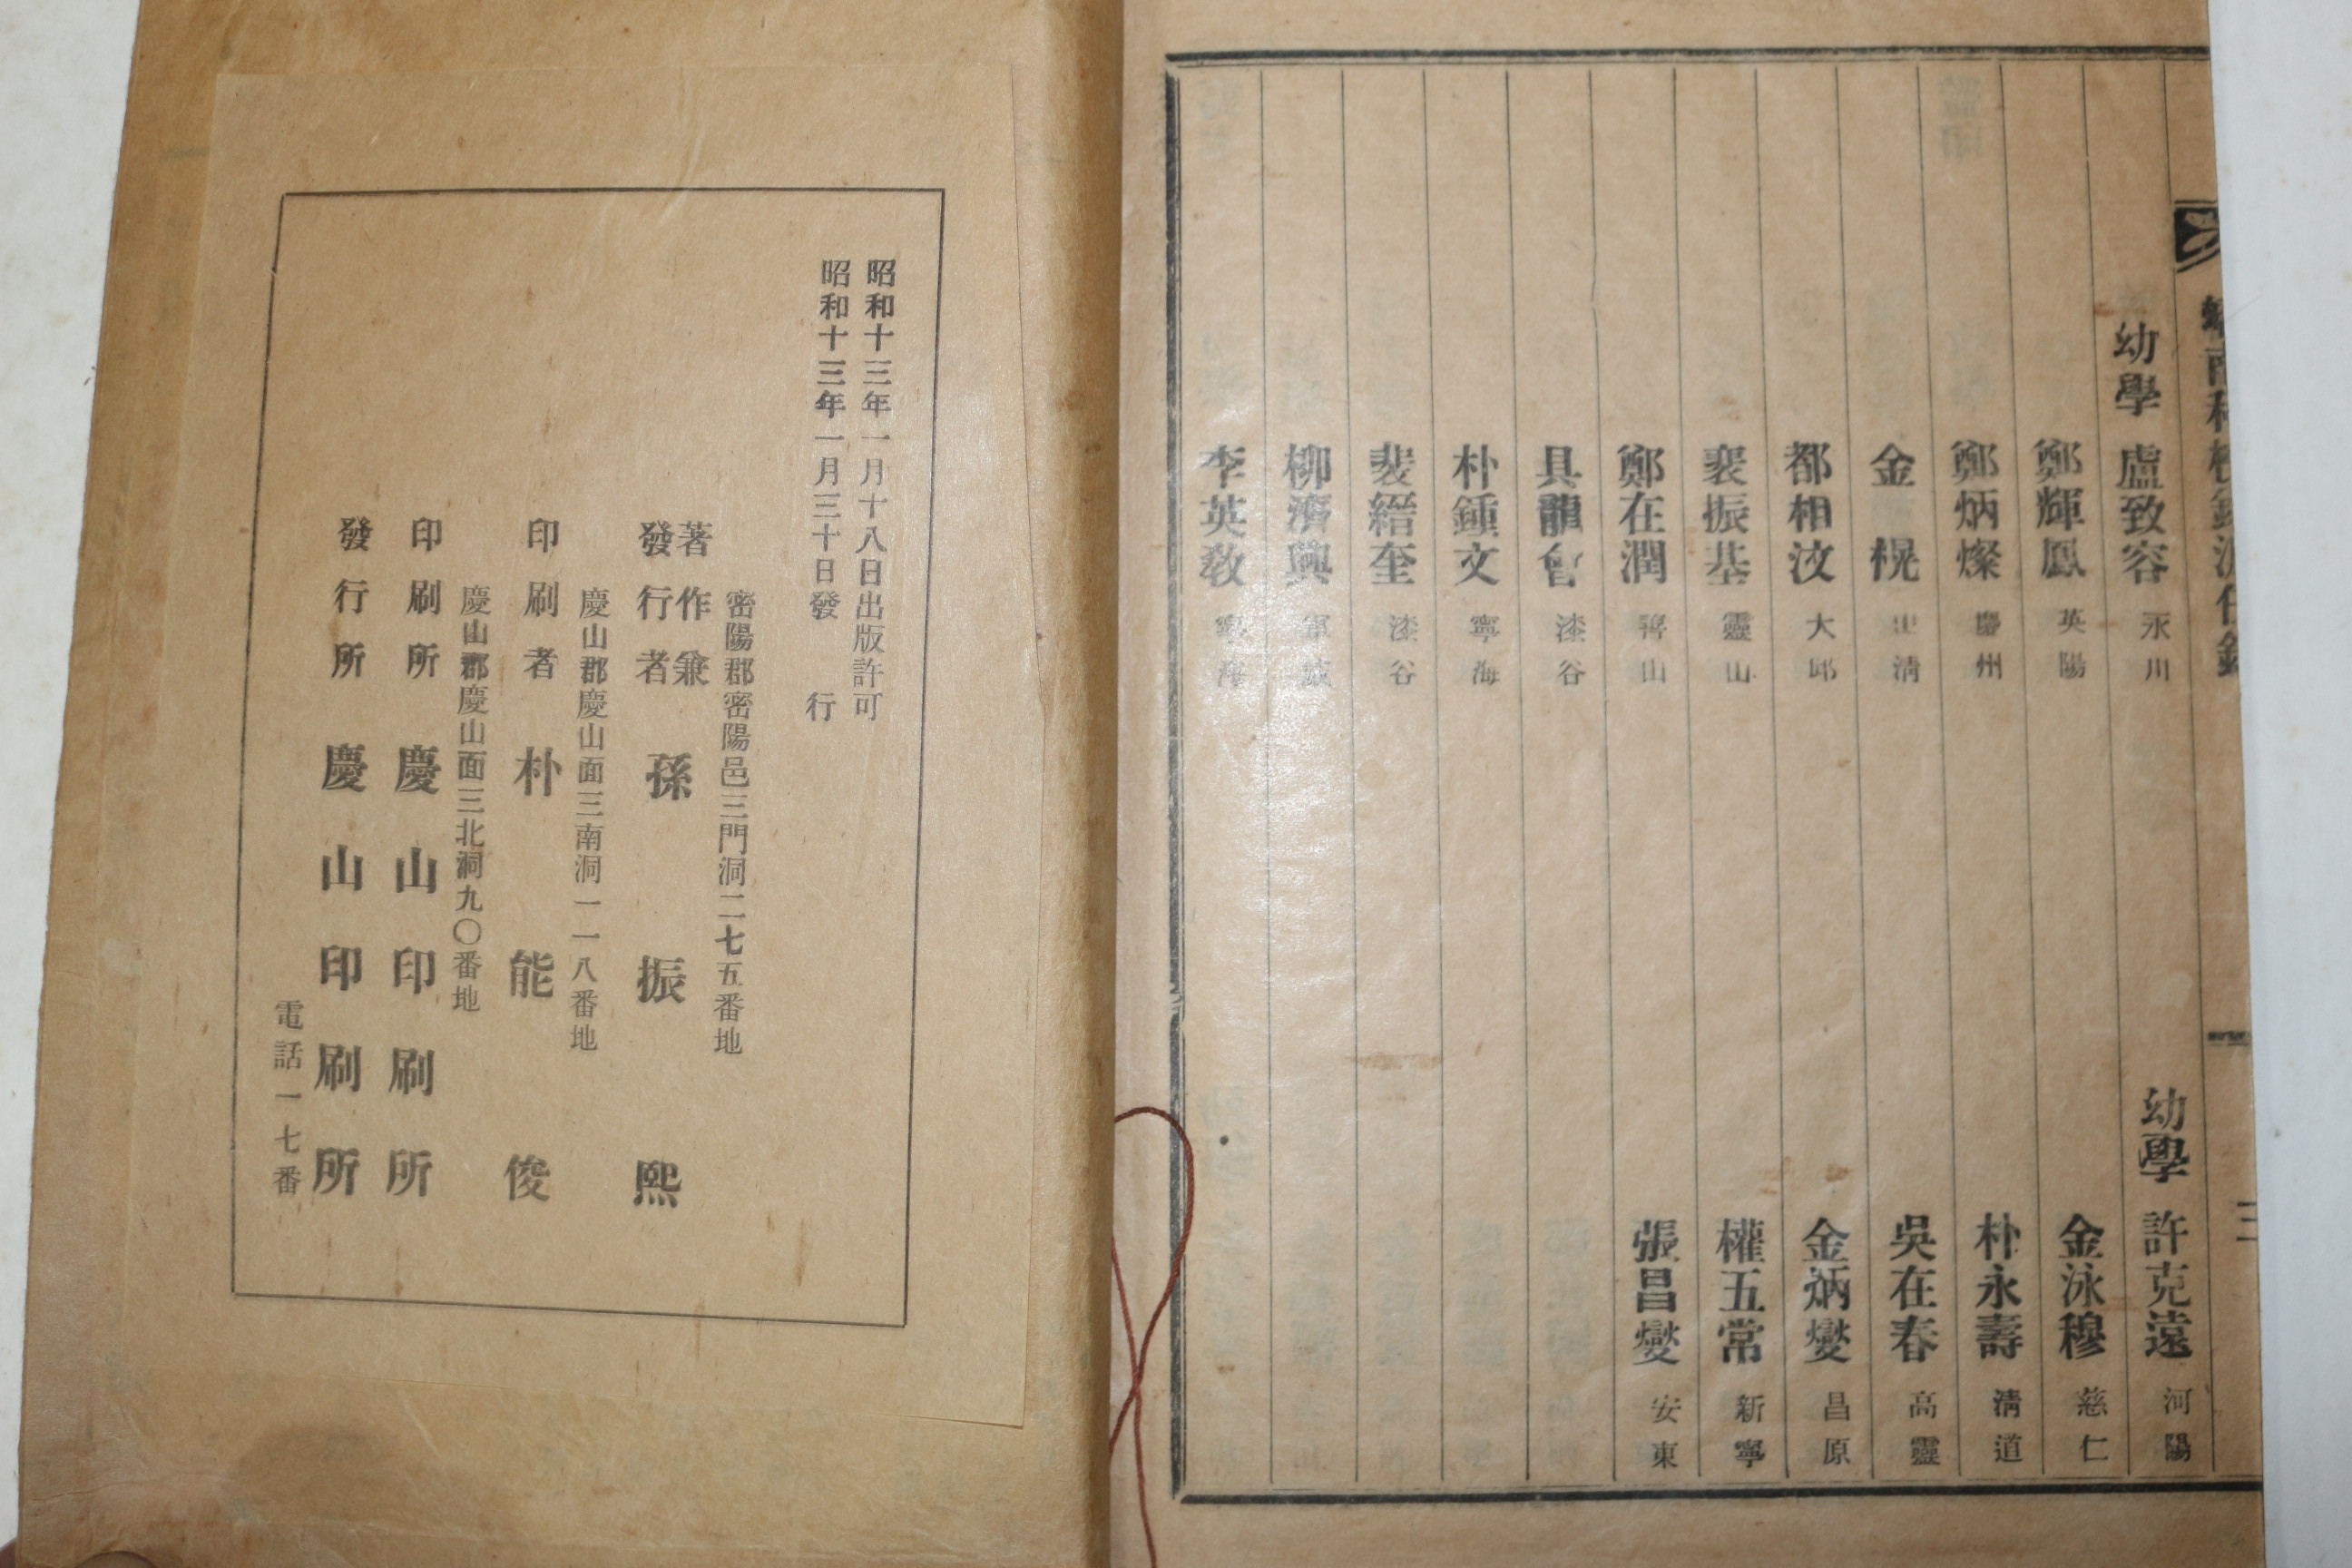 幼學 盧致容 永川
鄭輝鳳 英陽
鄭炳燦 慶州
金 榥
都相汶 大邱
裵振基 靈山
鄭在潤
具龍會 漆谷
朴鍾文 寧海
裴縉奎 漆谷
柳濟興
李英敎
幼學 許克遠 河陽
金泳穆 慈仁
朴永壽 淸道
吳在春 高靈
金炳燮 昌原
權五常 新寧
張昌燮 安東
三
昭和十三年一月十八日出版許可
昭和十三年一月三十日發 行
密陽郡密陽邑三門洞二七五番地
著作兼
發行者 孫振熙
慶山郡慶山面三南洞一一八番地
印刷者 朴能俊
慶山郡慶山面三北洞九〇番地
印刷所 慶山印刷所
發行所 慶山印刷所
電話一七番